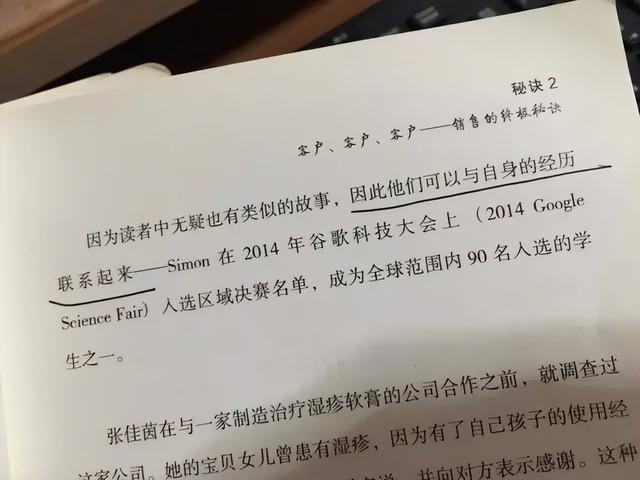 秘诀2
客户、客户、客户——销售的终极秘诀
因为读者中无疑也有类似的故事，因此他们可以与自身的经历
联系起来——Simon 在 2014 年谷歌科技大会上（2014 Google
Science Fair）入选区域决赛名单，成为全球范围内 90 名入选的学
生之一。
张佳茵在与一家制造治疗湿疹软膏的公司合作之前，就调查过
这家公司。她的宝贝女儿曾患有湿疹，因为有了自己孩子的使用经
并向对方表示感谢。这种